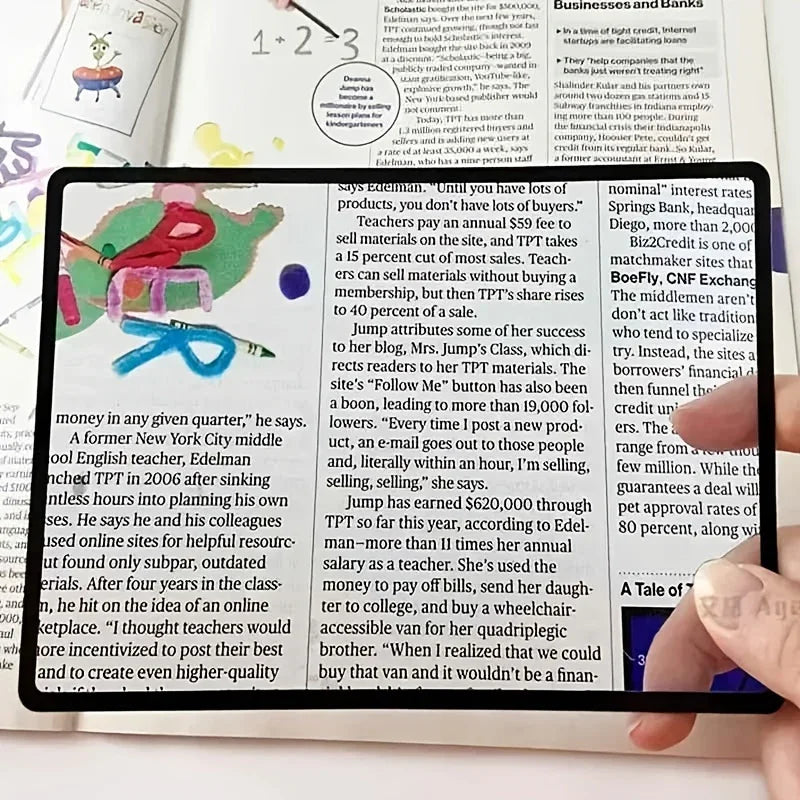 en invasion
1+2=3
Deanna
Jump has
become a
millionaire by selling
lesson plans for
kindergartners
Scholastic bought the site for $500,000,
Edelman says. Over the next few years,
TPT continued growing, though not fast
enough to hold Scholastic's interest.
Edelman bought the site back in 2009
at a discount. "Scholastic—being a big,
publicly traded company—wanted in-
stant gratification, YouTube-like,
explosive growth," he says. The
New York-based publisher would
not comment.
Today, TPT has more than
1.3 million registered buyers and
sellers and is adding new users at
a rate of at least 35,000 a week, says
Edelman, who has a nine-person staff
Businesses and Banks
In a time of tight credit, Internet
startups are facilitating loans
They "help companies that the
banks just weren't treating right"
Shalinder Kular and his partners own
around two dozen gas stations and 15
Subway franchises in Indiana employ-
ing more than 100 people. During
the financial crisis their Indianapolis
company, Hoosier Pete, couldn't get
credit from its regular bank. So Kular,
a former accountant at Ernst & Young
money in any given quarter," he says.
A former New York City middle
ool English teacher, Edelman
nched TPT in 2006 after sinking
ntless hours into planning his own
ses. He says he and his colleagues
used online sites for helpful resourc-
ut found only subpar, outdated
erials. After four years in the class-
m, he hit on the idea of an online
ketplace. "I thought teachers would
ore incentivized to post their best
and to create even higher-quality
says Edelman. "Until you have lots of
products, you don't have lots of buyers."
Teachers pay an annual $59 fee to
sell materials on the site, and TPT takes
a 15 percent cut of most sales. Teach-
ers can sell materials without buying a
membership, but then TPT's share rises
to 40 percent of a sale.
Jump attributes some of her success
to her blog, Mrs. Jump's Class, which di-
rects readers to her TPT materials. The
site's "Follow Me" button has also been
a boon, leading to more than 19,000 fol-
lowers. "Every time I post a new prod-
uct, an e-mail goes out to those people
and, literally within an hour, I'm selling,
selling, selling," she says.
Jump has earned $620,000 through
TPT so far this year, according to Edel-
man—more than 11 times her annual
salary as a teacher. She's used the
money to pay off bills, send her daugh-
ter to college, and buy a wheelchair-
accessible van for her quadriplegic
brother. "When I realized that we could
buy that van and it wouldn't be a finan-
nominal" interest rates
Springs Bank, headquar
Diego, more than 2,000
Biz2Credit is one of
matchmaker sites that
BoeFly, CNF Exchang
The middlemen aren't
don't act like tradition
who tend to specialize
try. Instead, the sites a
borrowers' financial d
then funnel the
credit uni
ers. The
range from a few thou
few million. While the
guarantees a deal will
pet approval rates of
80 percent, along wi
A Tale of
3